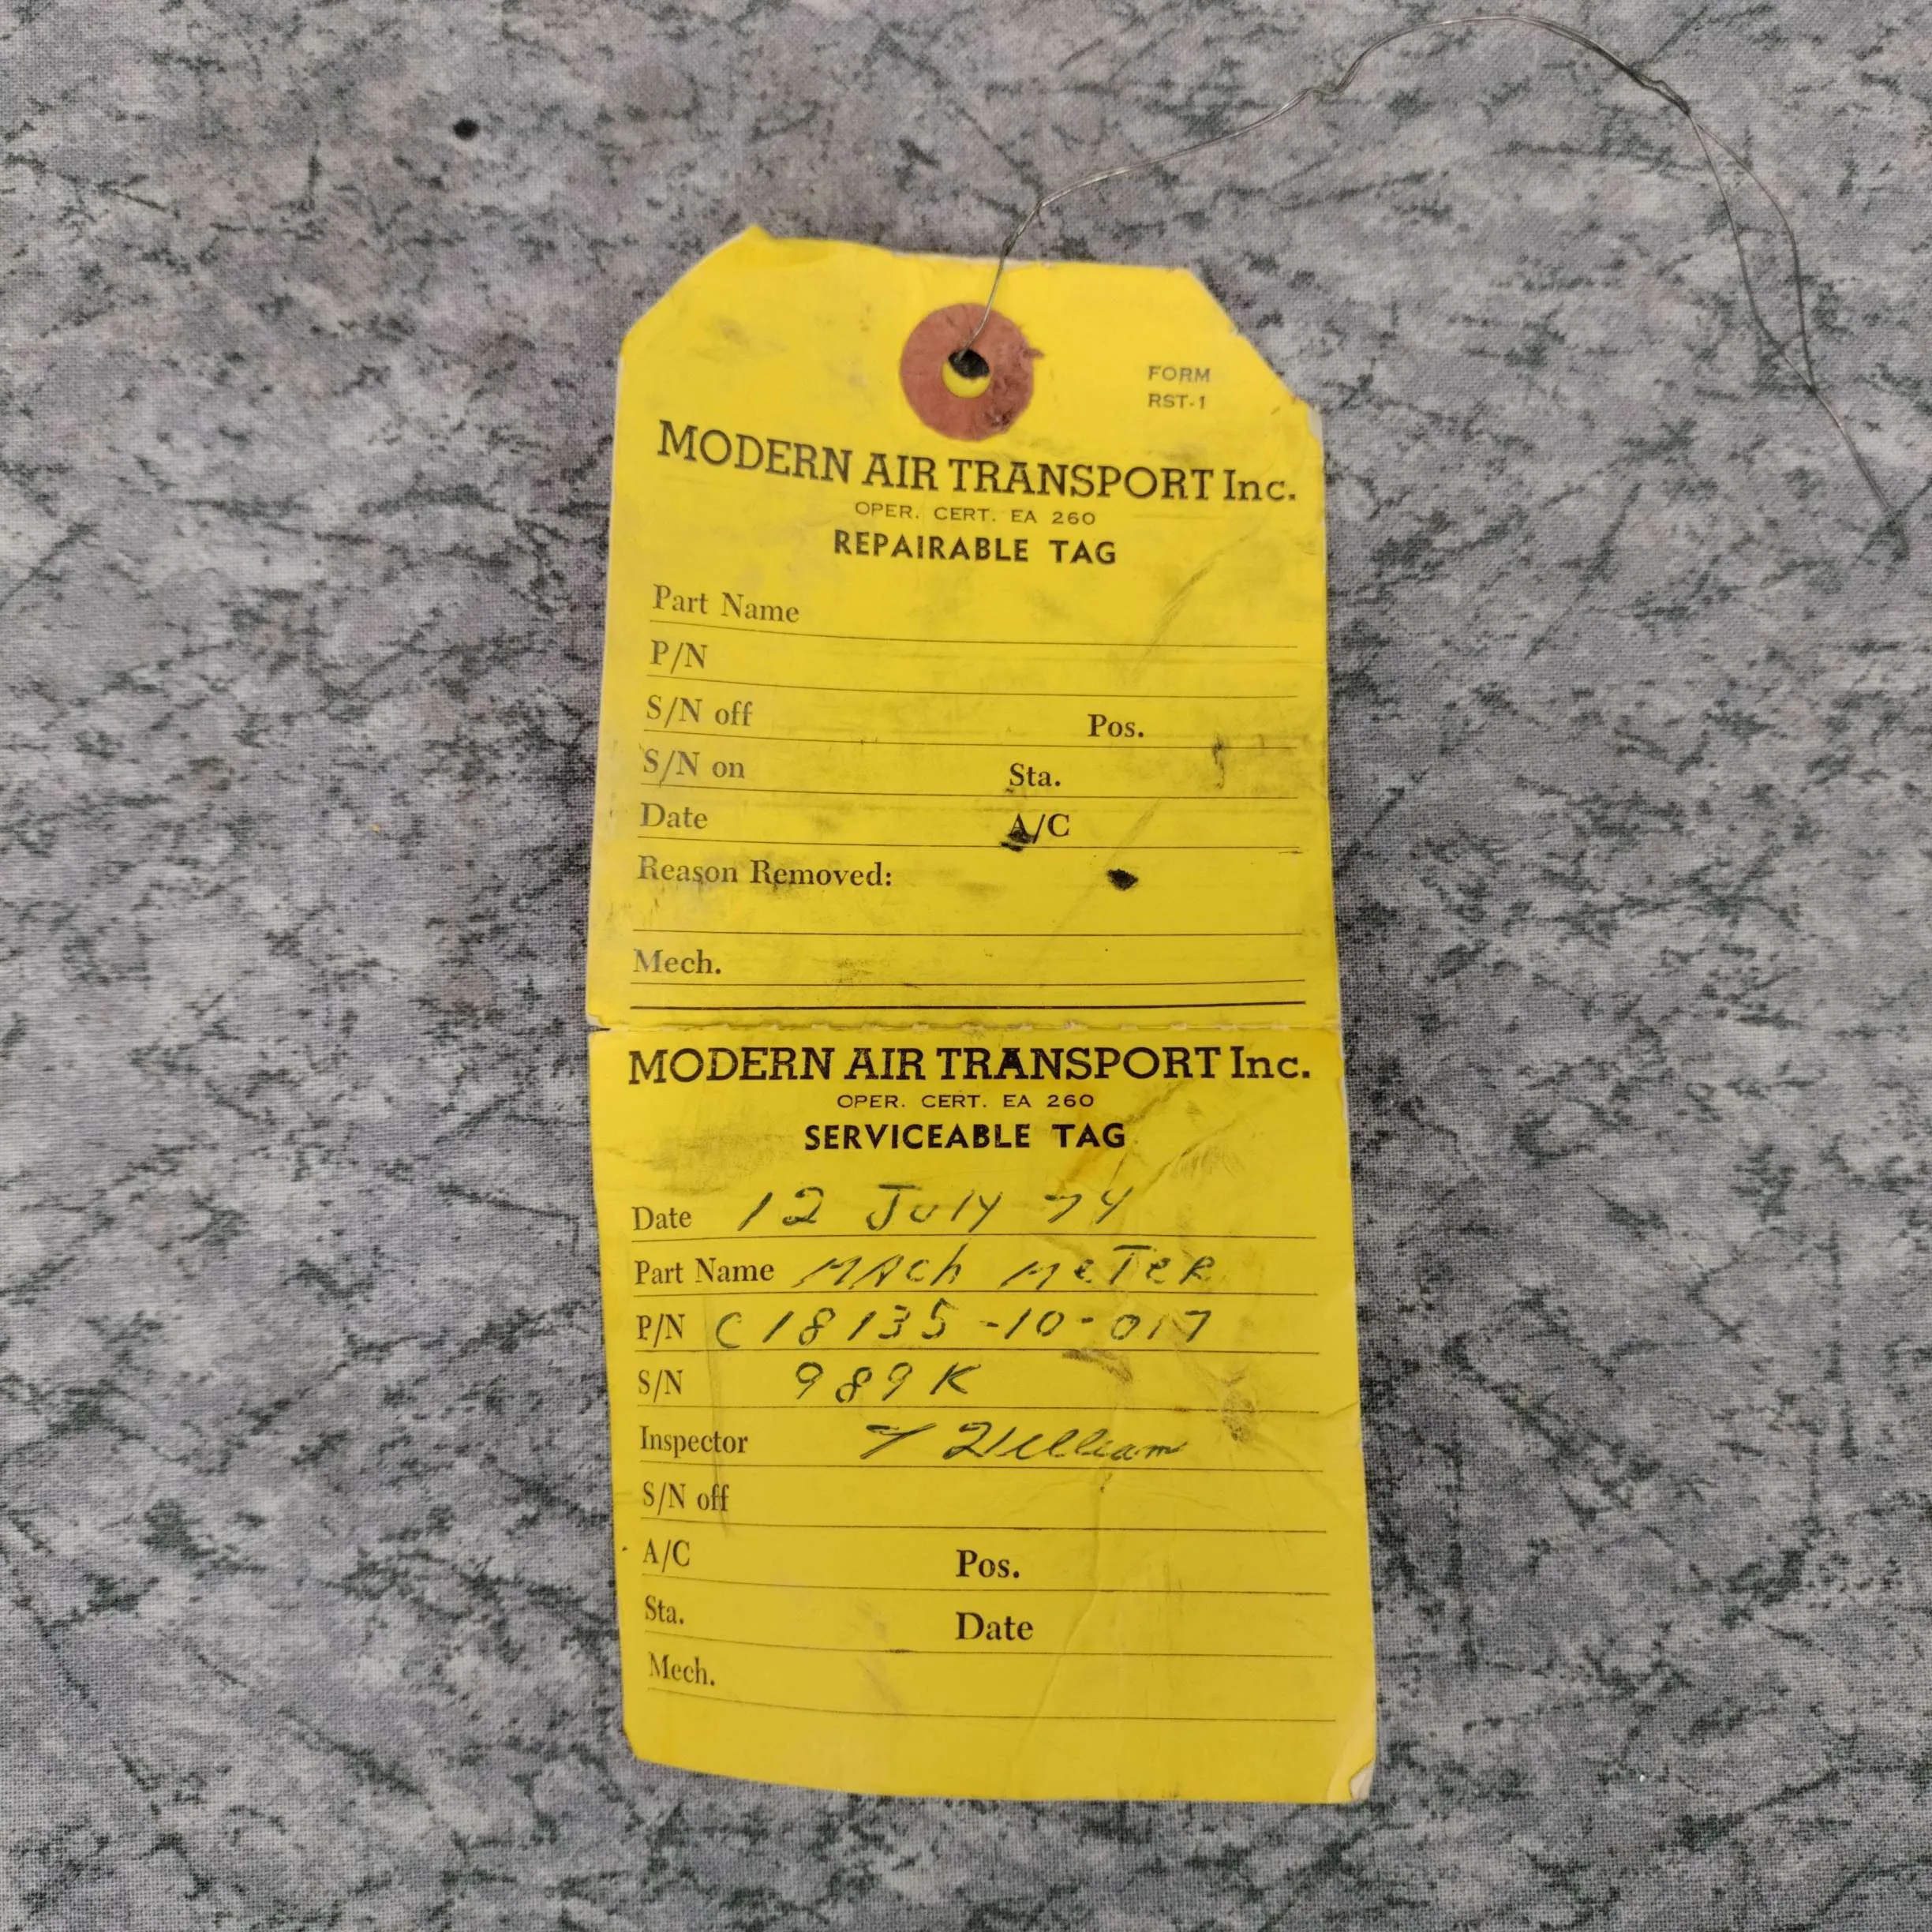 FORM
RST-1
MODERN AIR TRANSPORT Inc.
OPER. CERT. EA 260
REPAIRABLE TAG
Part Name
P/N
S/N off Pos.
S/N on Sta.
Date A/C
Reason Removed:
Mech.
MODERN AIR TRANSPORT Inc.
OPER. CERT. EA 260
SERVICEABLE TAG
Date 12 July 74
Part Name MAch MeTeR
P/N C18135-10-017
S/N 989K
Inspector
S/N off
A/C Pos.
Sta. Date
Mech.